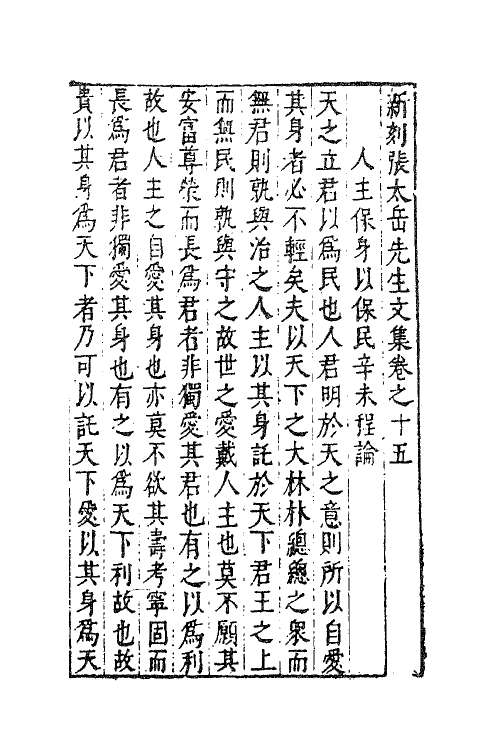 新刻張太岳先生文集卷之十五
人主保身以保民辛未程論
天之立君以爲民也人君明於天之意則所以自愛
其身者必不輕矣夫以天下之大林林總總之衆而
無君則孰與治之人主以其身託於天下君王之上
而無民則孰與守之故世之愛戴人主也莫不願其
安富尊榮而長爲君者非獨愛其君也有之以爲利
故也人主之自愛其身也亦莫不欲其壽考寧固而
長爲君者非獨愛其身也有之以爲天下利故也故
貴以其身爲天下者乃可以託天下愛以其身爲天